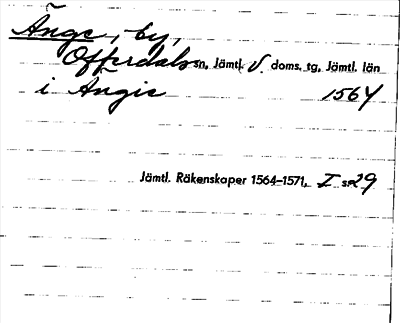 Änge, by,
Offerdals sn, Jämtl. V. doms. tg, Jämtl. län
i Ängie 1564
Jämtl. Räkenskaper 1564–1571, I s. 29